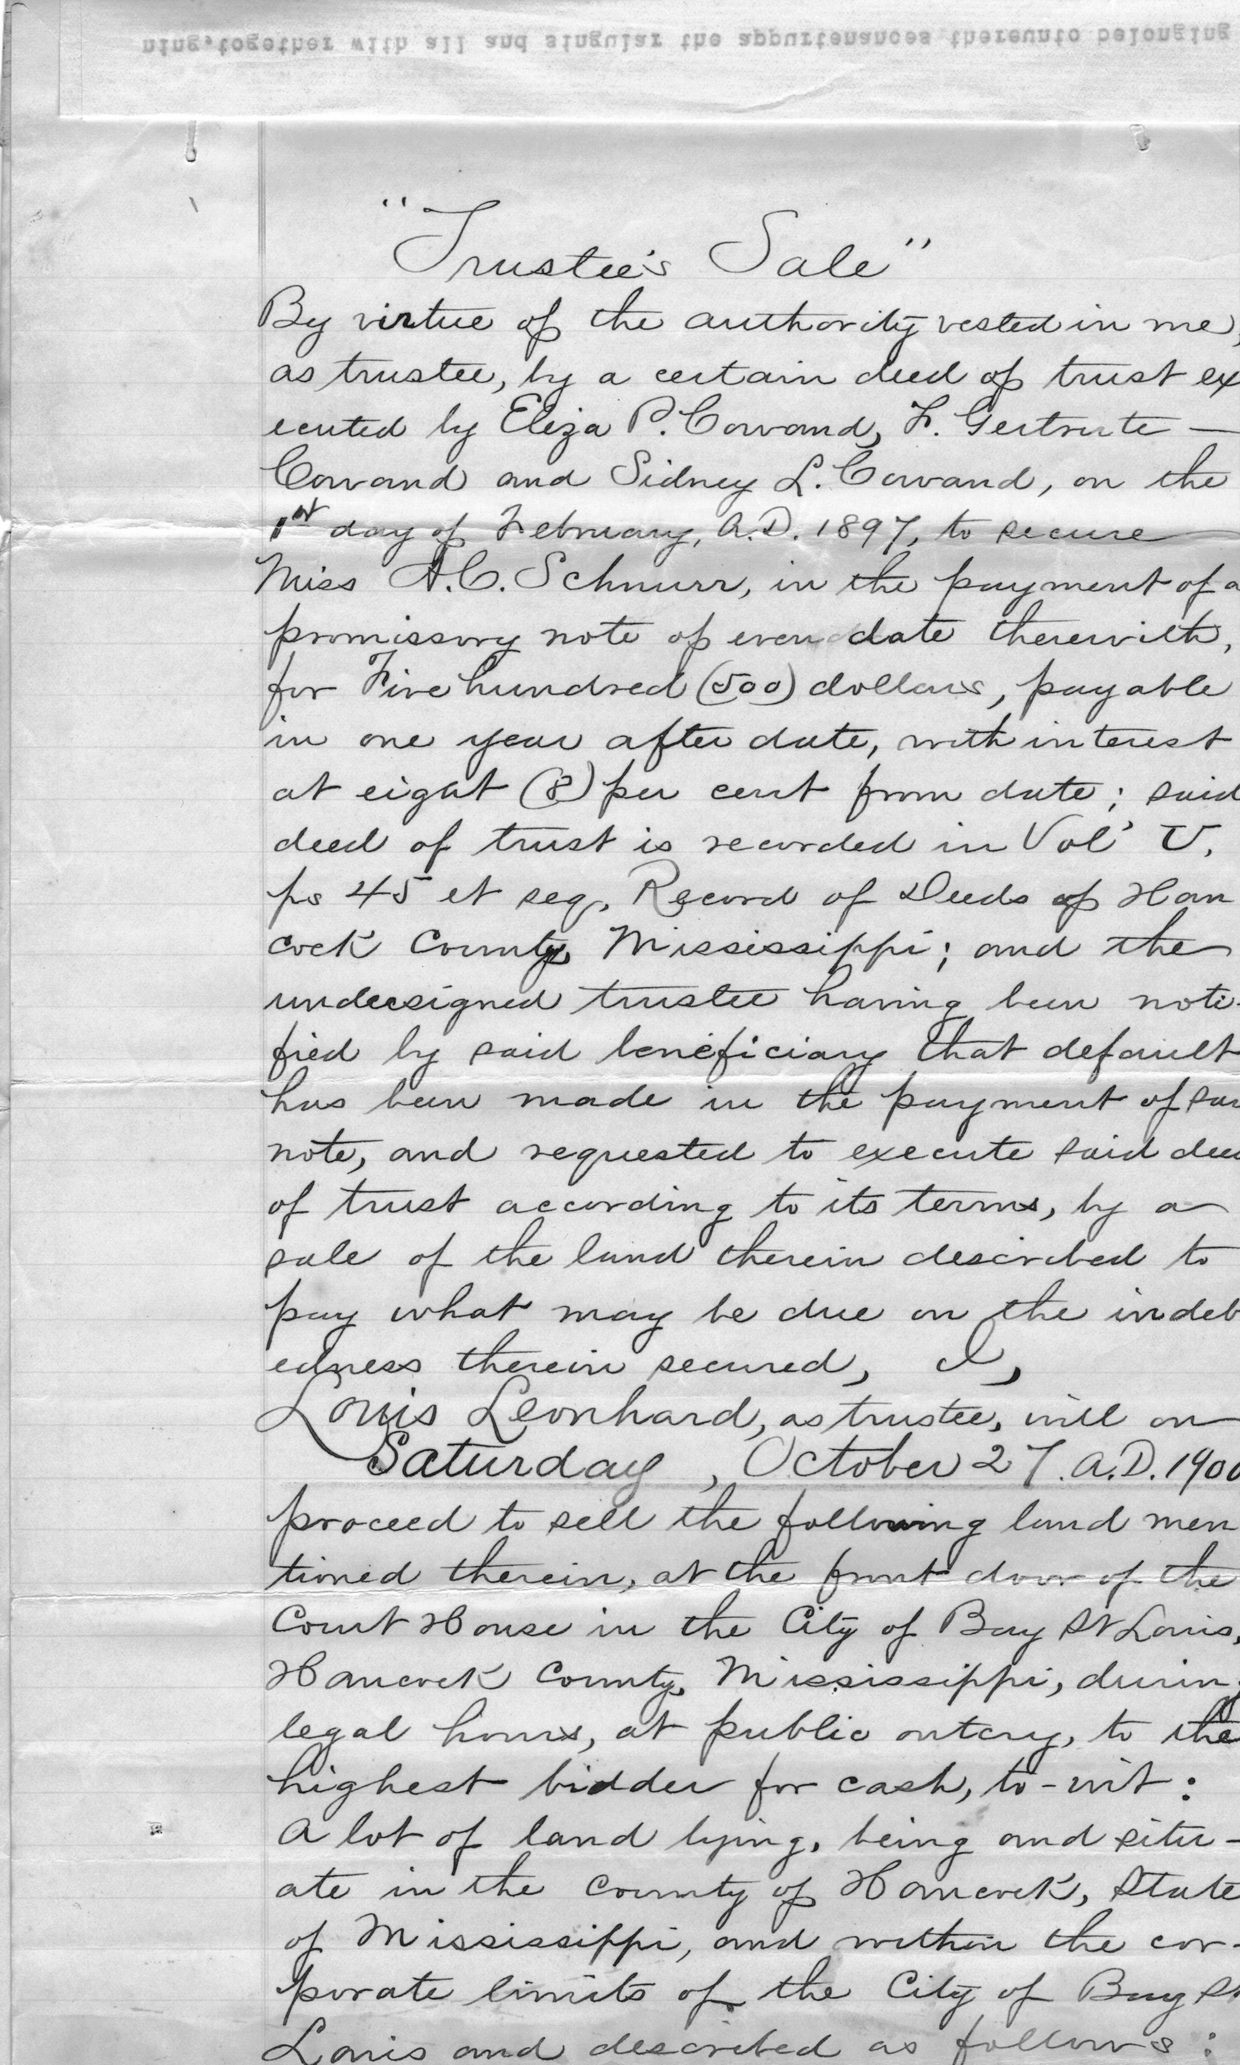 ning, together with all and singular the appurtenances thereunto belonging
"Trustee's Sale"
By virtue of the authority vested in me,
as trustee, by a certain deed of trust ex
ecuted by Eliza P. Cowand, F. Gertrute —
Cowand and Sidney L. Cowand, on the
1st day of February, A.D. 1897, to secure
Miss A.C. Schnurr, in the payment of a
promissory note of even date therewith,
for Five hundred (500) dollars, payable
in one year after date, with interest
at eight (8) per cent from date; said
deed of trust is recorded in Vol' U,
ps 45 et seq, Record of Deeds of Han
cock County, Mississippi; and the
undersigned trustee having been noti-
fied by said beneficiary that default
has been made in the payment of sai
note, and requested to execute said dee
of trust according to its terms, by a
sale of the land therein described to
pay what may be due on the indeb
edness therein secured, I,
Louis Leonhard, as trustee, will on
Saturday, October 27. A.D. 1900
proceed to sell the following land men
tioned therein, at the front door of the
Court House in the City of Bay St Louis,
Hancock County, Mississippi, during
legal hours, at public outcry, to the
highest bidder for cash, to-wit:
A lot of land lying, being and situ-
ate in the county of Hancock, State
of Mississippi, and within the cor-
porate limits of the City of Bay St
Louis and described as follows: